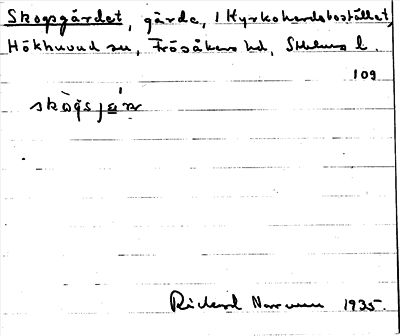 Skogsgärdet, gärde, i Kyrkoherdebostället,
Hökhuvud sn, Frösåkers hd, Sthlms l.
109
skògsjæ̀ɳ
Rickard Norman 1935.